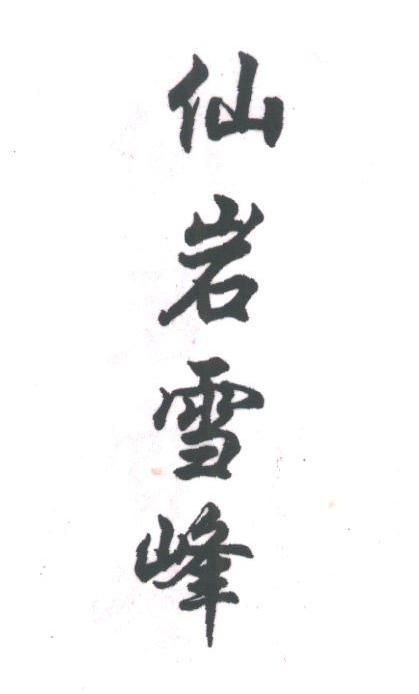 仙岩雪峰